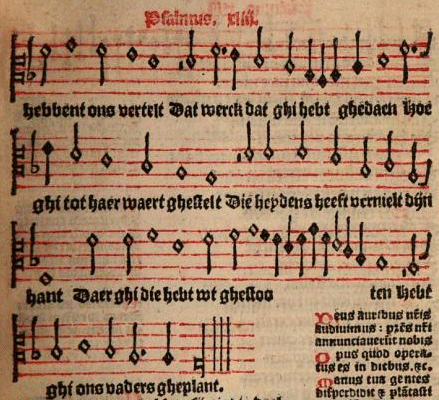 Psalmus. xliii.
hebbent ons vertelt Dat werck dat ghi hebt ghedaen Hoe
ghi tot haer waert ghestelt Die heydens heeft vernielt dijn
hant Daer ghi die hebt wt ghestoo ten Hebt
ghi ons vaders gheplant.
Deus auribus nr̃is
audiuimus : pr̃es nr̃i
annunciauerũt nobis
Opus quod opera-
tus es in diebus. &c.
Manus tua gentes
disperdidit & plãtasti